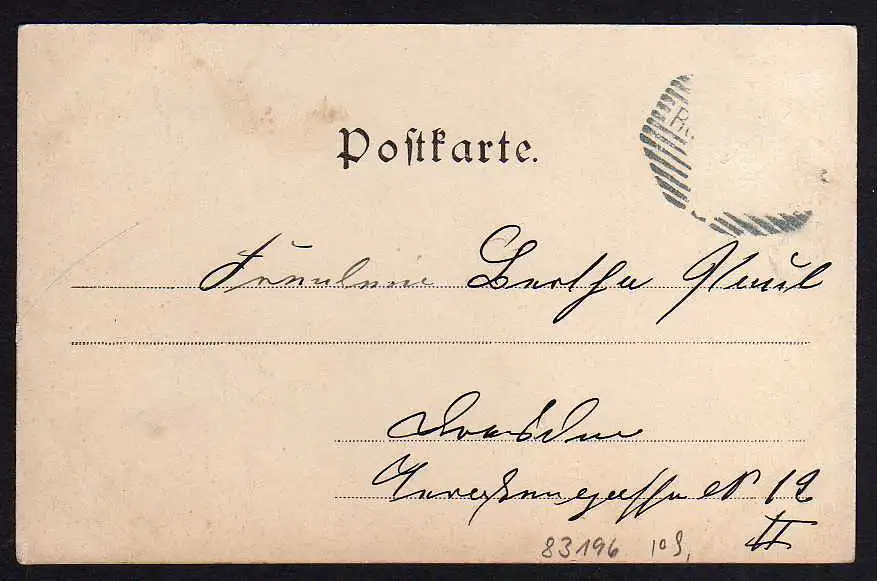 Postkarte.
Fräulein Bertha Paul
Dresden
N 12
II
83196 10 S,